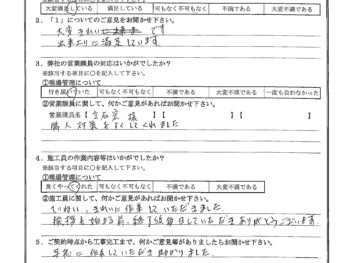 大変満足している 満足している 可もなく不可もなく 不満である 大変不満である
2．「1」についてのご意見をお聞かせ下さい。
大変きれいに です
出来上りに満足しています
3．弊社の営業課員の対応はいかがでしたか？
※該当する項目に○を記入して下さい。
①現場管理について
行き届いていた 可もなく不可もなく 不満である 大変不満である 一度も会わなかった
②営業課員に関して、何かご意見があればお聞かせ下さい。
営業課員名【 様 】【 】【 】
隣人対策をよくしてくれました
4．施工員の作業内容等はいかがでしたか？
※該当する項目に○を記入して下さい。
①現場管理について
良くやってくれた 可もなく不可もなく 不満である 大変不満である
②施工員に関して、何かご意見がありましたらお聞かせ下さい。
ていねい、きれいに作業していただきました
挨拶も始まる前、終了後毎日していただきありがとうございます．
5．ご契約時点から工事完工まで、何かご意見等がありましたらお聞かせ下さい。
早急に作業していただき助かりました